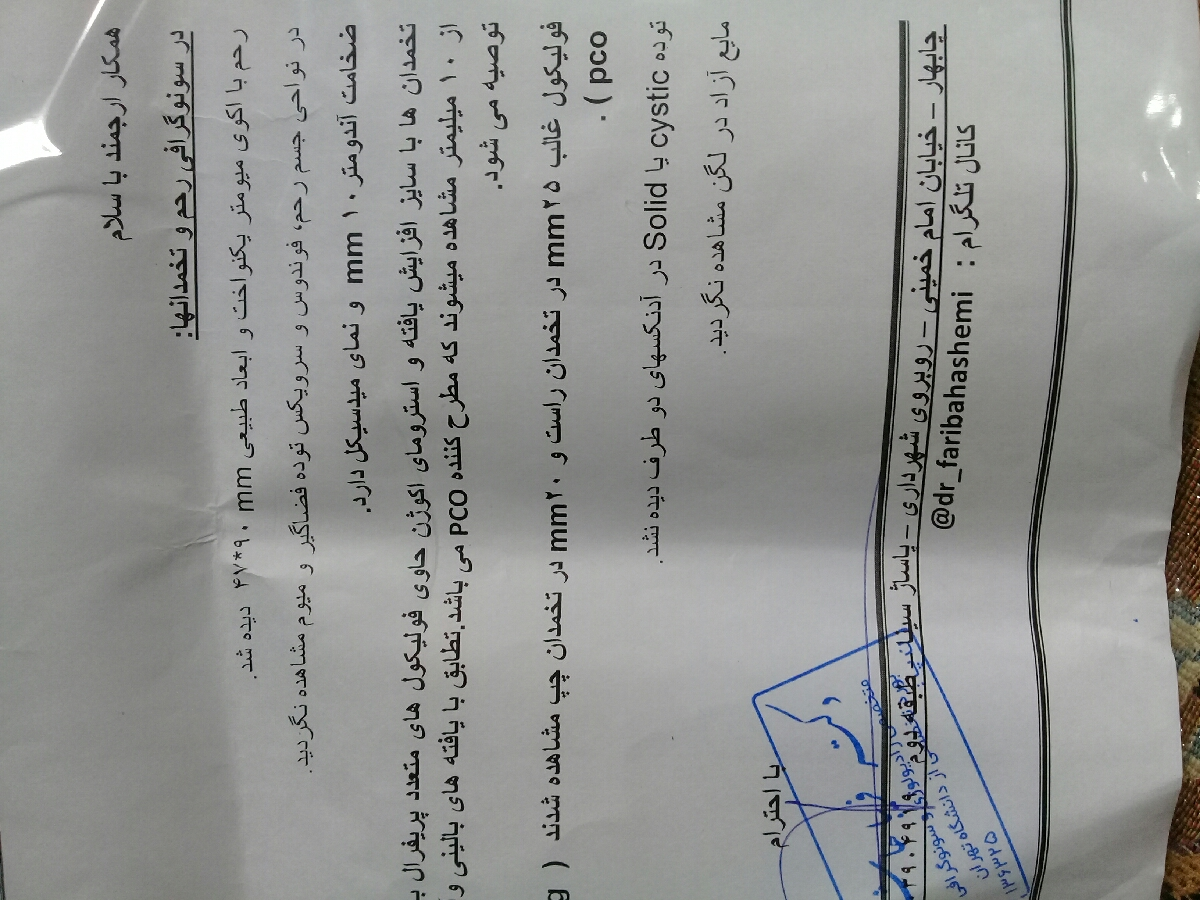 همکار ارجمند با سلام
در سونوگرافی رحم و تخمدانها:
رحم با اکوی میومتر یکنواخت و ابعاد طبیعی ۴۷*۹۰ mm دیده شد.
در نواحی جسم رحم، فوندوس و سرویکس توده فضاگیر و میوم مشاهده نگردید.
ضخامت آندومتر ۱۰ mm و نمای میدسیکل دارد.
تخمدان ها با سایز افزایش یافته و استرومای اکوژن حاوی فولیکول های متعدد پریفرال
از ۱۰ میلیمتر مشاهده میشوند که مطرح کننده PCO می باشد.تطابق با یافته های بالینی و
توصیه می شود.
فولیکول غالب ۲۵mm در تخمدان راست و ۲۰mm در تخمدان چپ مشاهده شدند (
pco ) .
توده cystic یا Solid در آدنکسهای دو طرف دیده نشد.
مایع آزاد در لگن مشاهده نگردید.
با احترام
دکتر
متخصص رادیولوژی و سونوگرافی
از دانشگاه تهران
۱۳۶۳۲۵
چابهار - خیابان امام خمینی - روبروی شهرداری - پاساژ سینا - طبقه دوم
کانال تلگرام : @dr_faribahashemi